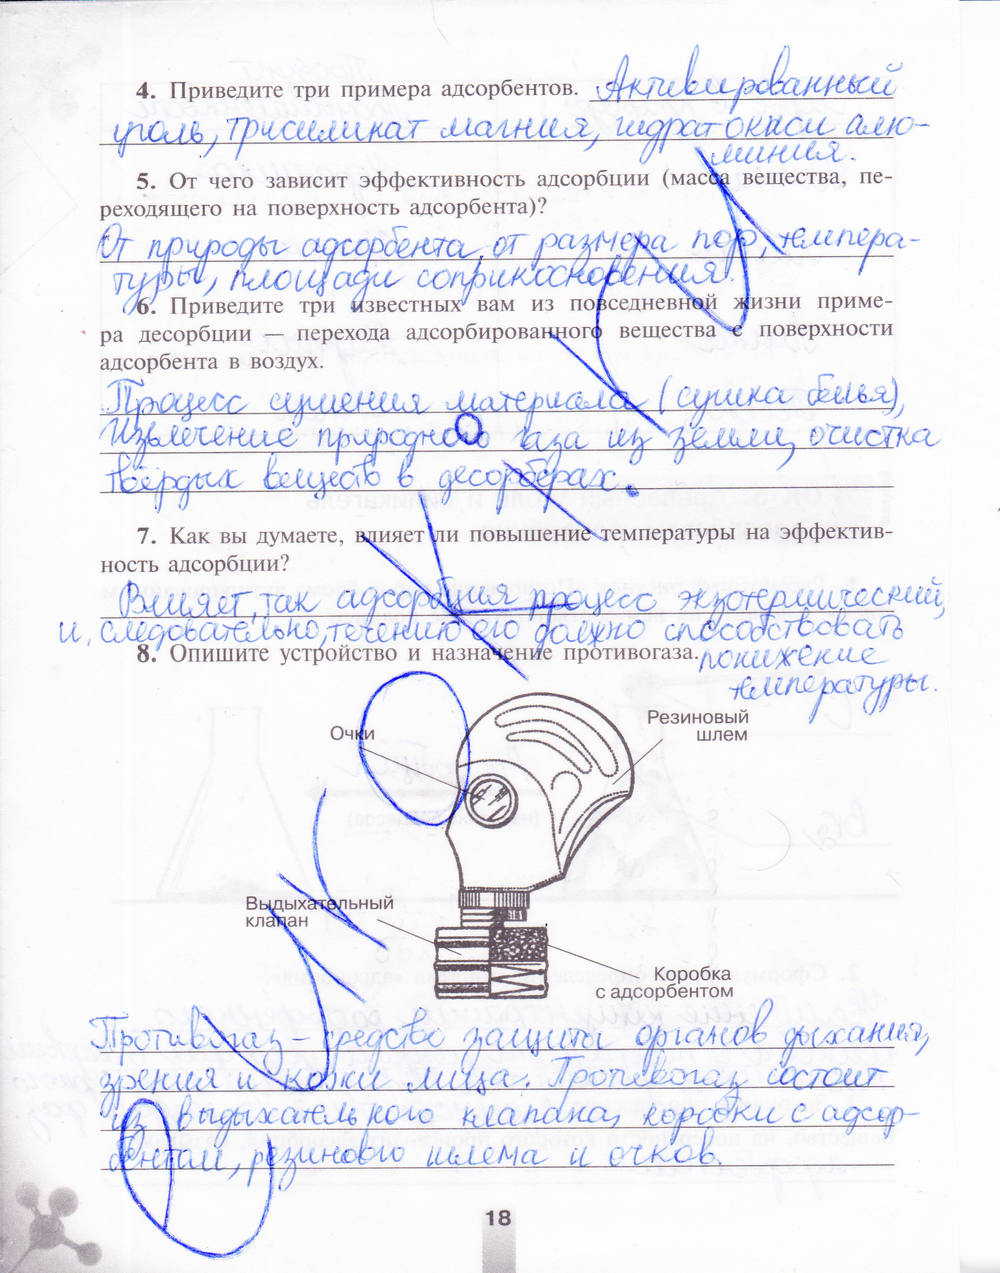 4. Приведите три примера адсорбентов. Активированный
уголь, трисиликат магния, гидрат окиси алю-
миния.
5. От чего зависит эффективность адсорбции (масса вещества, пе-
реходящего на поверхность адсорбента)?
От природы адсорбента, от размера пор, темпера-
туры, площади соприкосновения.
6. Приведите три известных вам из повседневной жизни приме-
ра десорбции — перехода адсорбированного вещества с поверхности
адсорбента в воздух.
Процесс сушения материала (сушка белья),
Извлечение природного газа из земли, очистка
твёрдых веществ в десорберах.
7. Как вы думаете, влияет ли повышение температуры на эффектив-
ность адсорбции?
Влияет, так адсорбция процесс экзотермический,
и, следовательно, течению его должно способствовать
понижение
температуры.
8. Опишите устройство и назначение противогаза.
Очки
Резиновый
шлем
Выдыхательный
клапан
Коробка
с адсорбентом
Противогаз – средство защиты органов дыхания,
зрения и кожи лица. Противогаз состоит
из выдыхательного клапана, коробки с адсор-
бентом, резинового шлема и очков.
18